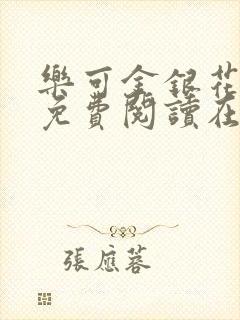 樂可金銀花
免費閱讀在
張應蓉